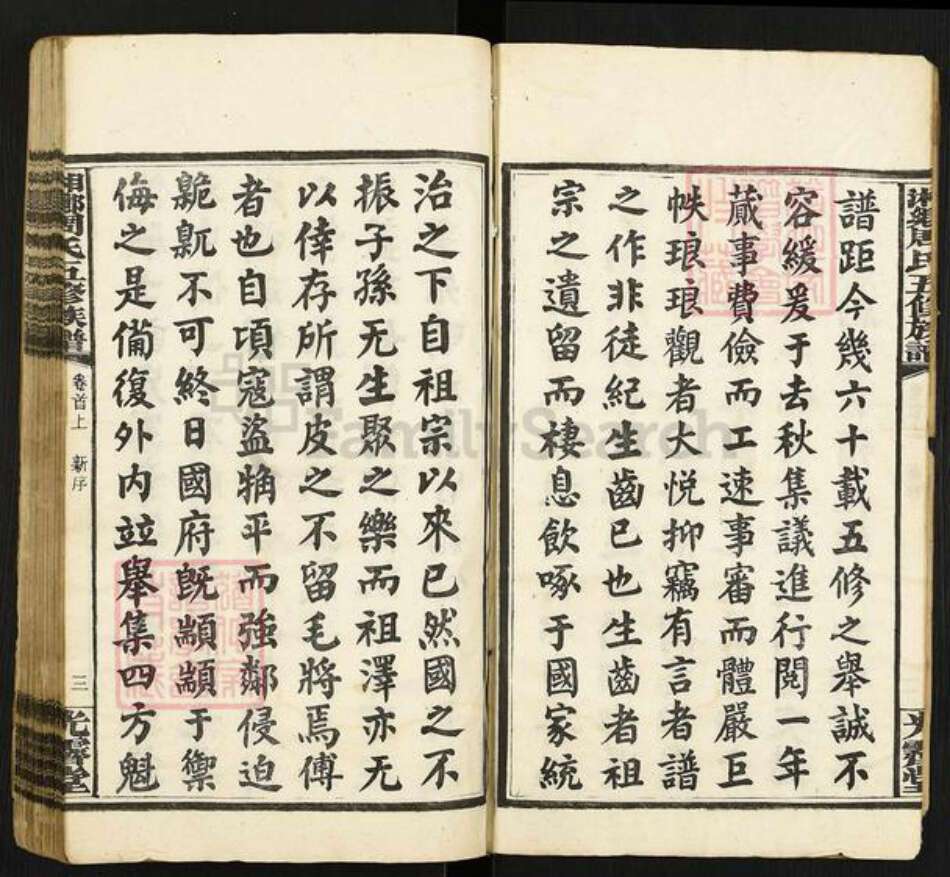 湘鄉周氏五修族譜
光霽堂
譜距今幾六十載五修之舉誠不
容緩爰于去秋集議進行閱一年
蕆事費儉而工速事審而體嚴巨
帙琅琅觀者大悅抑竊有言者譜
之作非徒紀生齒已也生齒者祖
宗之遺留而棲息飲啄于國家統
治之下自祖宗以來已然國之不
振子孫无生聚之樂而祖澤亦无
以倖存所謂皮之不留毛將焉傅
者也自頃寇盜犕平而強鄰侵迫
臲卼不可終日國府旣顓顓于禦
侮之是備復外內竝舉集四方魁
湘鄉周氏五修族譜
卷首上 新序
三
光霽堂
FamilySearch